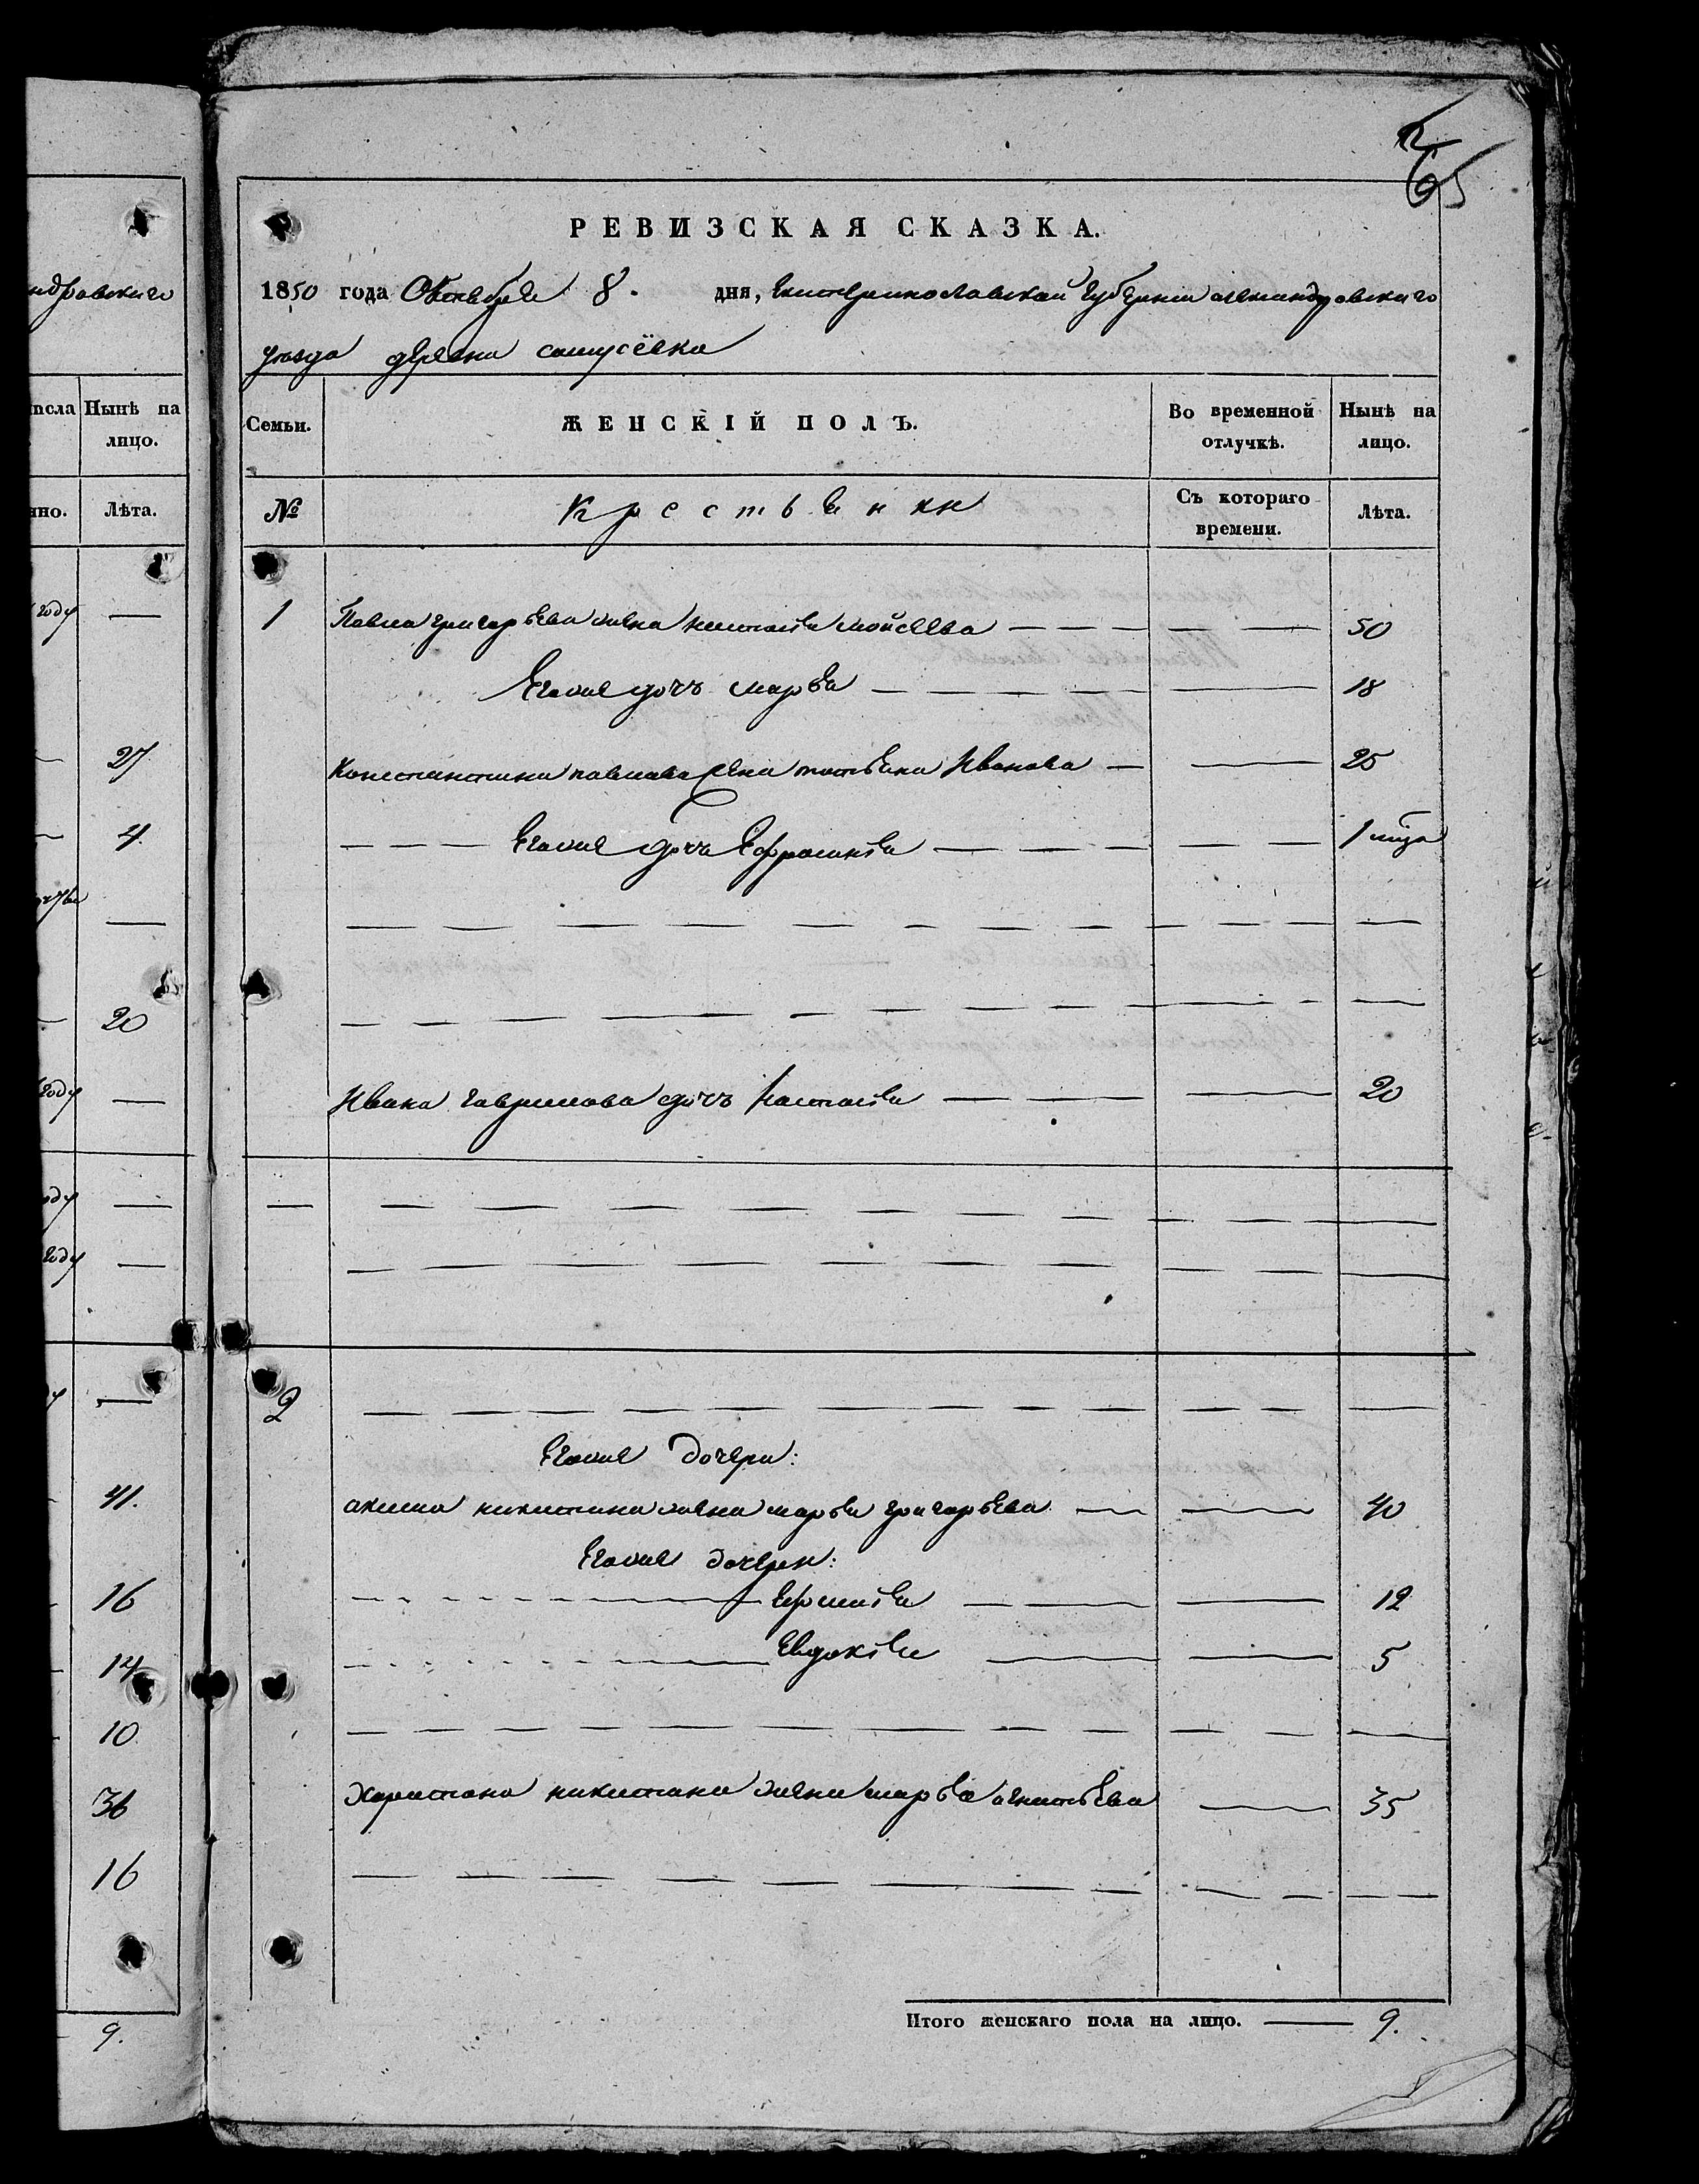 65
РЕВИЗСКАЯ СКАЗКА.
1850 года Октября 8. дня, Екатеринославской губернии александровскаго
уезда деревни
Семьи. ЖЕНСКІЙ ПОЛЪ. Во временной отлучкѣ. Нынѣ на лицо.
№ Крестьянки Съ котораго времени. Лѣта.
1 Павла григорьева жена настасья мойсеева 50
Егоже дочъ марья 18
Константина павлова жена татьяна Иванова 25
Егоже дочь Ефросинья 1
Ивана гаврилова дочъ Настасья 20
2
Егоже дочери:
акима никитина жена марья григорьева 40
Егоже дочери:
12
Евдокья 5
Харитона никитина жена марья игнатьева 35
Итого женскаго пола на лицо. 9.
ндровскаго
исла Нынѣ на лицо.
нно. Лѣта.
году
27
4
20
году
оду
году
41.
16
14
10
36
16
9.